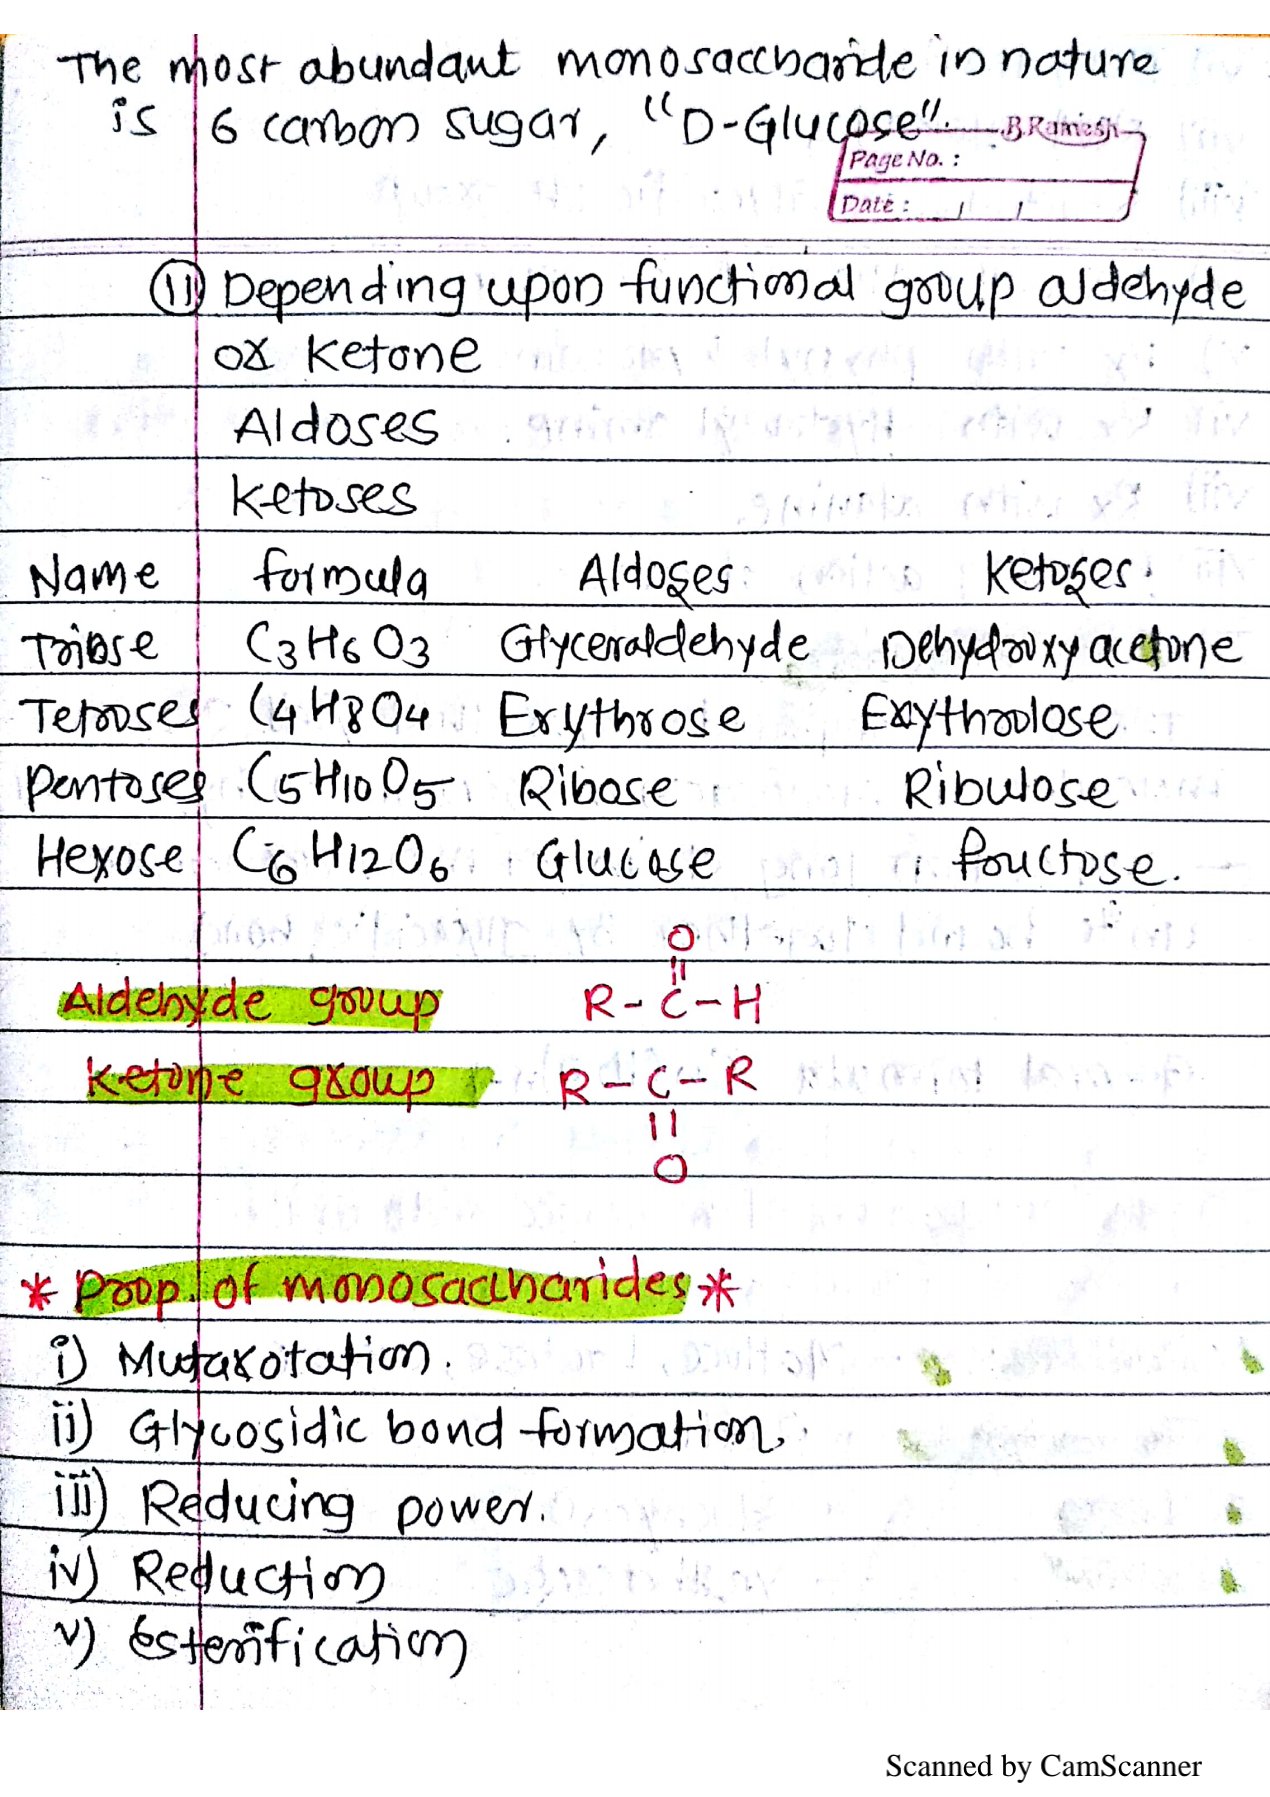 The most abundant monosaccharide in nature
is 6 carbon sugar, "D-Glucose".
B Ramesh
Page No. :
Date : / /
(11) Depending upon functional group aldehyde
or ketone
Aldoses
Ketoses
Name formula Aldoses Ketoses
Triose C3H6O3 Glyceraldehyde Dehydroxy acetone
Tetroses C4H8O4 Erythrose Erythrolose
Pentoses C5H10O5 Ribose Ribulose
Hexose C6H12O6 Glucose fructose.
O
||
Aldehyde group R-C-H
Ketone group R-C-R
||
O
* Prop. of monosaccharides *
i) Mutarotation.
ii) Glycosidic bond formation.
iii) Reducing power.
iv) Reduction
v) Esterification
Scanned by CamScanner